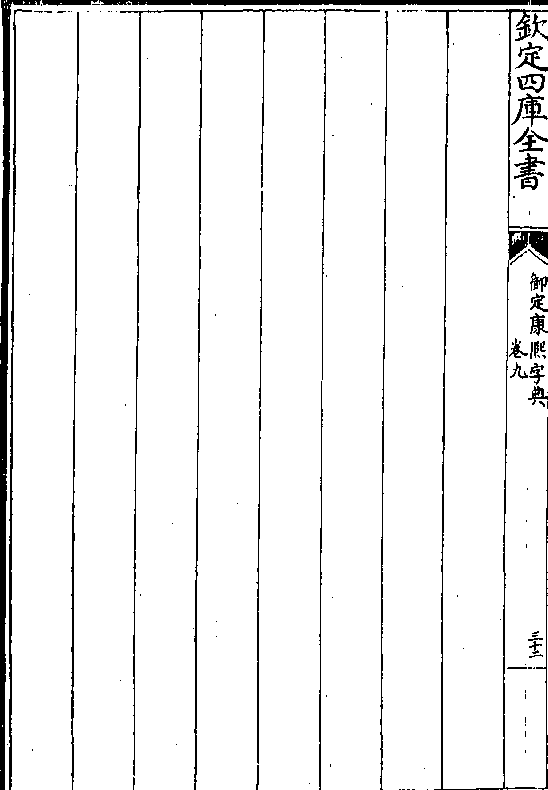 欽定四庫全書
御定康熙字典
卷九
三十二